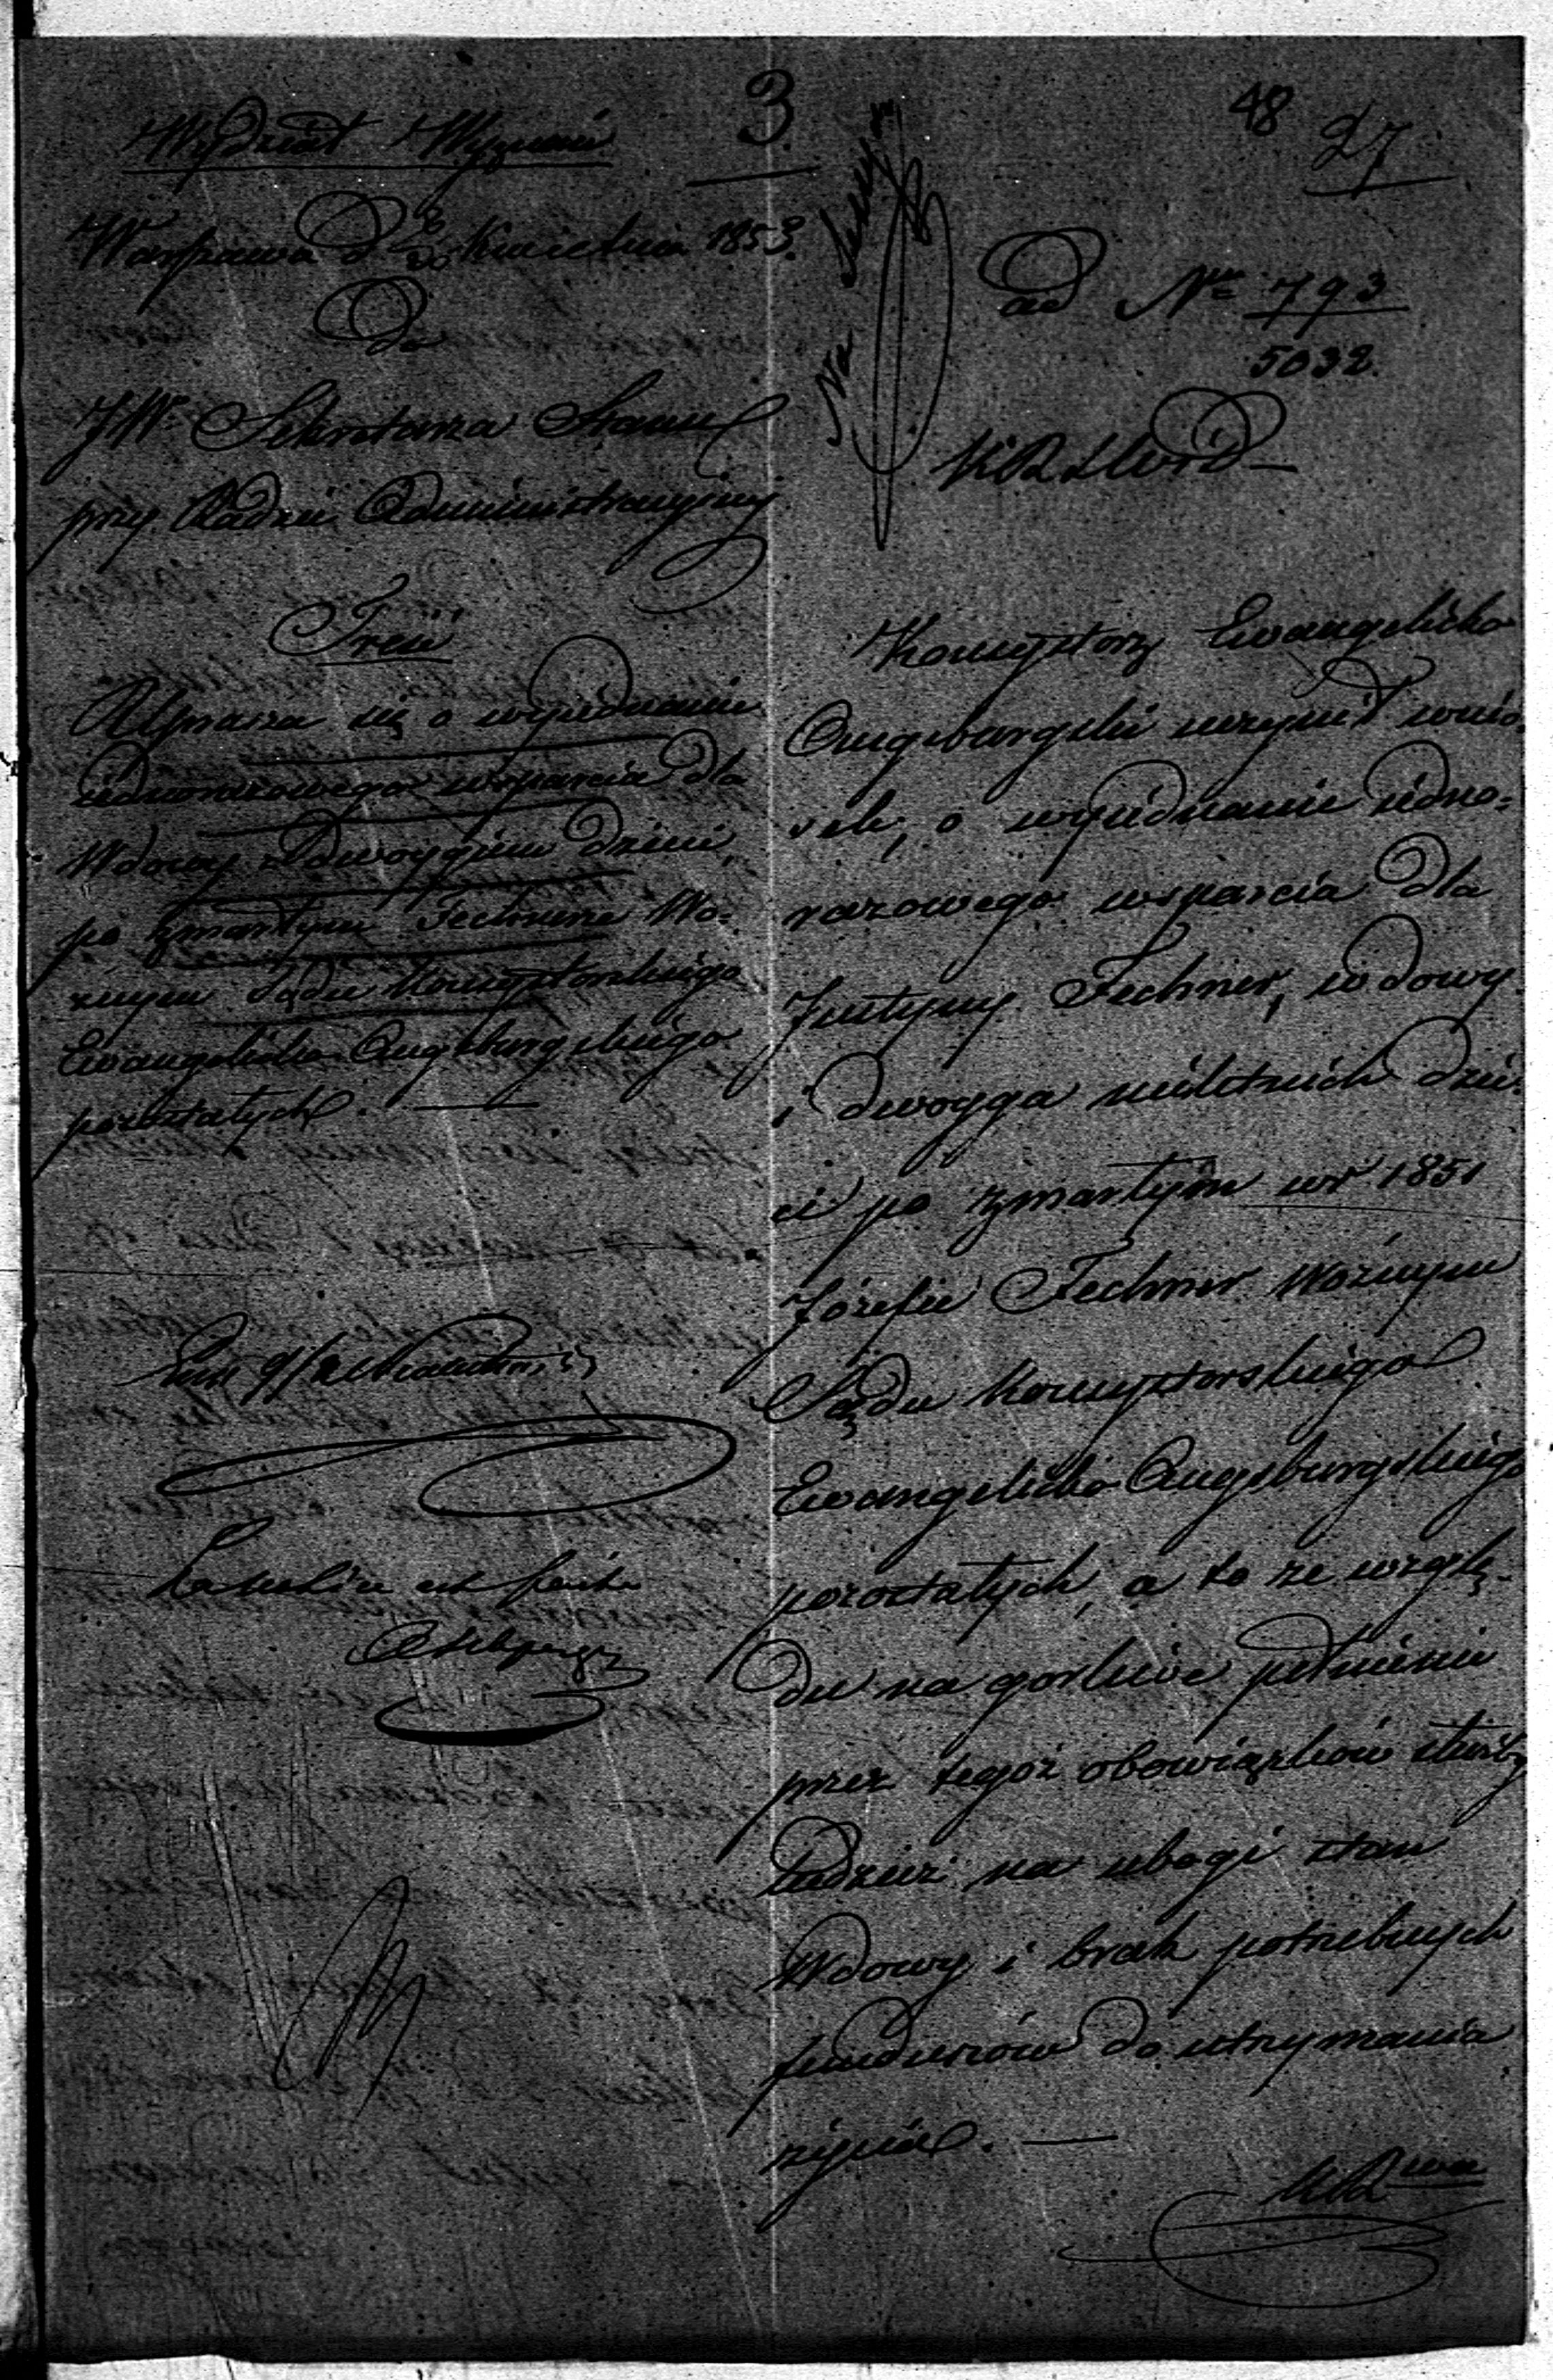 3
48
27
Wydział Wyznań
Warszawa d 8/20 Kwietnia 1853.
Do
JW. Sekretarza Stanu
przy Radzie Administracyjnej
Treść
Uprasza się o wyjednanie
jednorazowego wsparcia dla
Wdowy z dwojgiem dzieci,
po zmarłym Fechnerze Wo-
źnym Sądu Konsystorskiego
Ewangelicko Augsburgskiego
pozostałych. —
ad Nr 793
5032.
Konsystorz Ewangelicko
Augsburgski uczynił wnio-
sek, o wyjednanie jedno=
razowego wsparcia dla
Justyny Fechner, wdowy
i dwojga nieletnich dzie-
ci po zmarłym w r 1851
Józefie Fechner Woźnym
Sądu Konsystorskiego
Ewangelicko Augsburgskiego
pozostałych, a to ze wzglę-
du na gorliwe pełnienie
przez tegoż obowiązków służby
tudzież na ubogi stan
Wdowy i brak potrzebnych
funduszów do utrzymania
życia. —